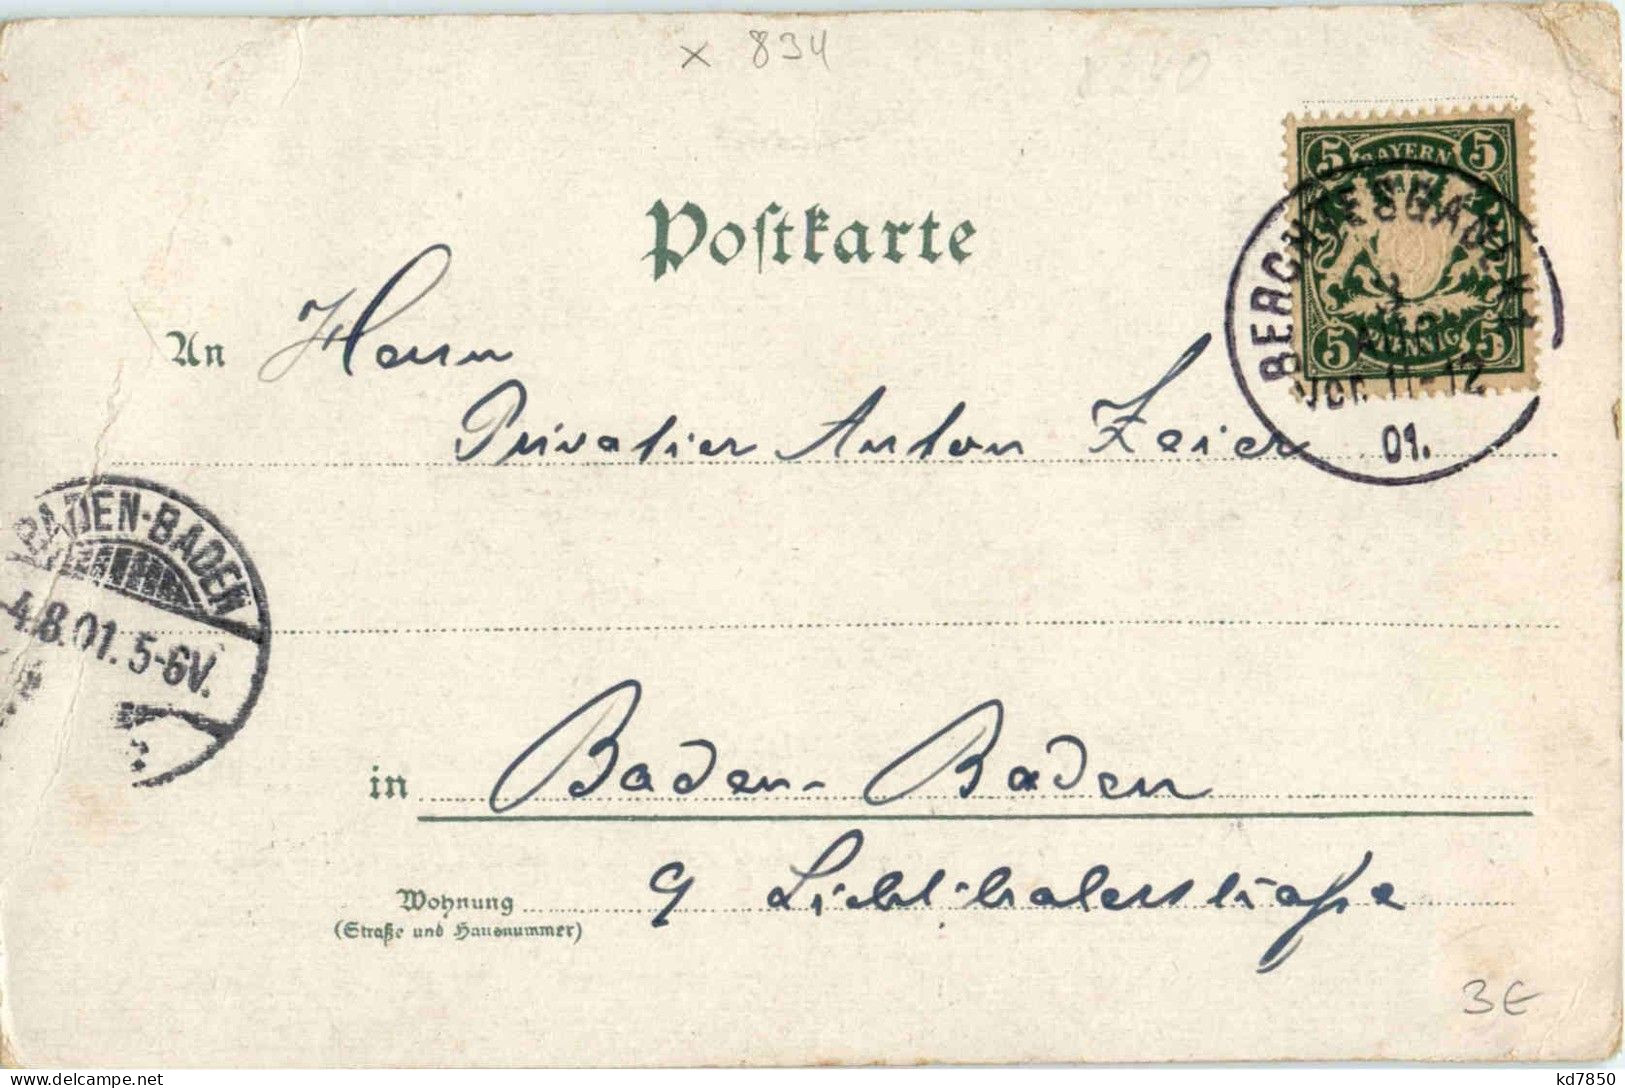 x 834
Postkarte
5 BAYERN 5
5 PFENNIG 5
BERCHTESGADEN
3
AUG
Vor. 11-12
01.
An Herrn
Privatier Anton Zeier
BADEN-BADEN
4.8.01. 5-6V.
in Baden-Baden
Wohnung 9 Lichtenthalerstraße
(Straße und Hausnummer)
3€
kd7850